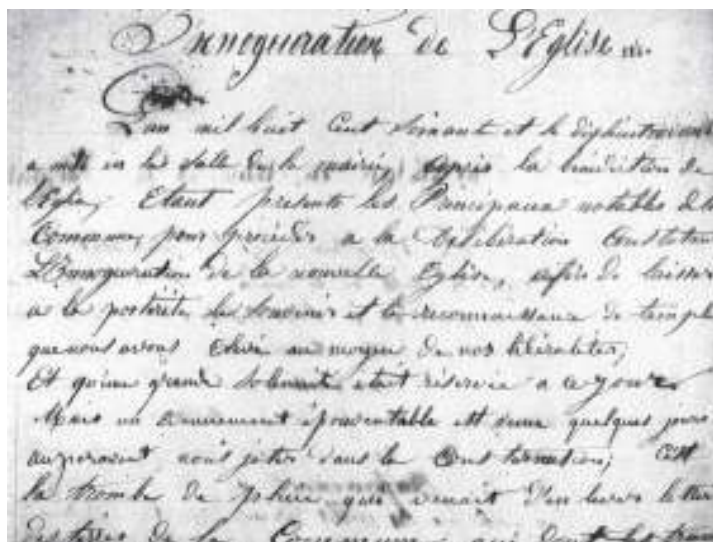 Innoguration de L'Eglise
L'an mil huit Cent soixante et le dixhuit
a midi en la salle de la mairie, après la bénédiction de
l'Eglise, Etant présents les Principaux notables de la
Commune, pour procéder a la Délibération
L'Innoguration de la nouvelle Eglise, afin de laisser
a la postérité le souvenir et la reconnaissance de temple
que nous avons Elevé au moyen de nos libéralités,
Et qu'une grande solennité etait réservée a ce jour
Mais un évennement épouventable est venu quelques jours
auparavant nous jeter dans la Consternation; C'est
la trombe de pluie qui venait
de la Commune qui dont